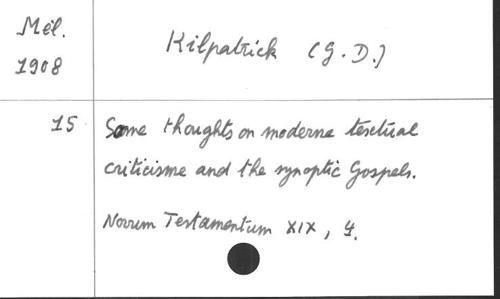 Mél.
1908
Kilpatrick (G.D.)
15
Some thoughts on moderne tesctual
criticisme and the synoptic Gospels.
Novum Testamentum XIX, 4.